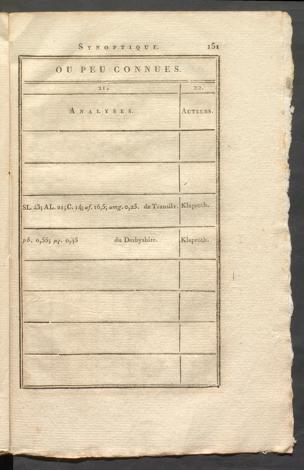 SYNOPTIQUE. 151
OU PEU CONNUES.
21. 22.
ANALYSES. AUTEURS.
SL. 43; AL. 21; C. 14; af. 16,5; amg. 0,25. de Transilv. Klaproth.
pb. 0,55; 0,45 du Derbyshire. Klaproth.